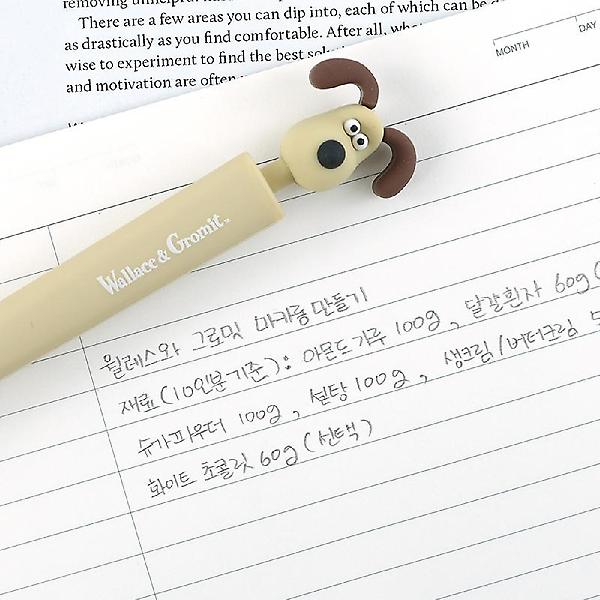 removing unhelpful
There are a few areas you can dip into, each of which can be
as drastically as you find comfortable. After all,
wise to experiment to find the best
and motivation are often
MONTH
DAY
Wallace & Gromit™
월레스와 그로밋 마카롱 만들기
재료(10인분 기준): 아몬드가루 100g, 달걀흰자 60g(
슈가파우더 100g, 설탕 100g, 생크림/버터크림
화이트 초콜릿 60g (선택)